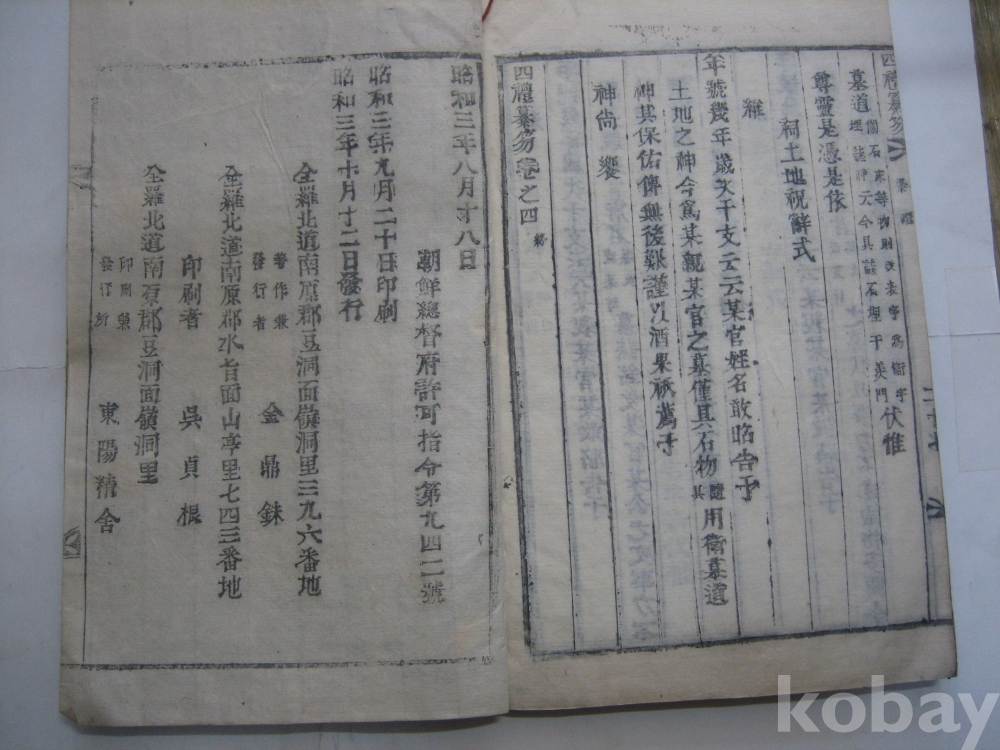 墓道
伏惟
尊靈是憑是依
祠土地祝辭式
維
年號幾年歲次干支云云某官姓名敢昭告于
土地之神今爲某親某官之墓僅具石物隨其用衛墓道
神其保佑俾無後艱謹以酒果祗薦于
神尙饗
四禮纂笏卷之四 終
昭和三年八月十八日
朝鮮總督府許可指令第九四二號
昭和三年九月二十日印刷
昭和三年十月十二日發行
全羅北道南原郡豆洞面嶺洞里三九六番地
著作兼
發行者 金鼎銖
全羅北道南原郡水旨面山亭里七四三番地
印刷者 吳貞根
全羅北道南原郡豆洞面嶺洞里
印刷兼
發行所 東陽精舍
kobay